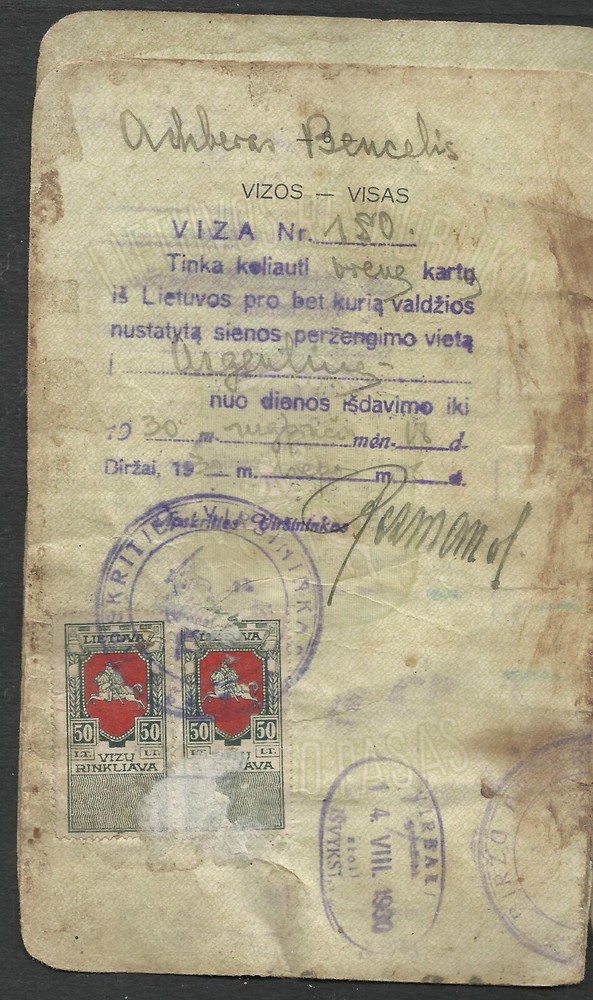 Acheras Bencelis
— 8 —
VIZOS — VISAS
VIZA Nr. 180.
Tinka keliauti vieną kartą
iš Lietuvos pro bet kurią valdžios
nustatytą sienos peržengimo vietą
į Argentiną
nuo dienos išdavimo iki
1930 m. mėn. 18 d.
Biržai, 1930 m. m. d.
Apskrities Viršininkas
KRITIES VIRŠININKAS
LIETUVA LIETUVA
50 50 50 50
LT. LT. LT. LT.
VIZŲ
RINKLIAVA
VIRBALI
14. VIII. 1930
IŠVYKST.
BIRŽŲ